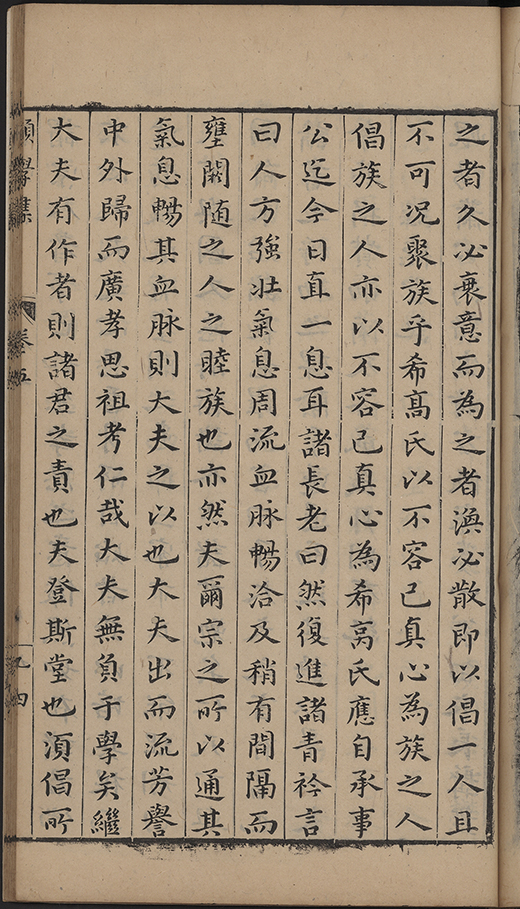 之者久必衰意而為之者渙必散即以倡一人且
不可況聚族乎希髙氏以不容已真心為族之人
倡族之人亦以不容已真心為希髙氏應自承事
公迄今日直一息耳諸長老曰然復進諸青衿言
曰人方強壯氣息周流血脉暢洽及稍有間隔而
壅閼随之人之睦族也亦然夫爾宗之所以通其
氣息暢其血脉則大夫之以也大夫出而流芳譽
中外歸而廣孝思祖考仁哉大夫無負于學矣繼
大夫有作者則諸君之責也夫登斯堂也湏倡所
願學集
卷五